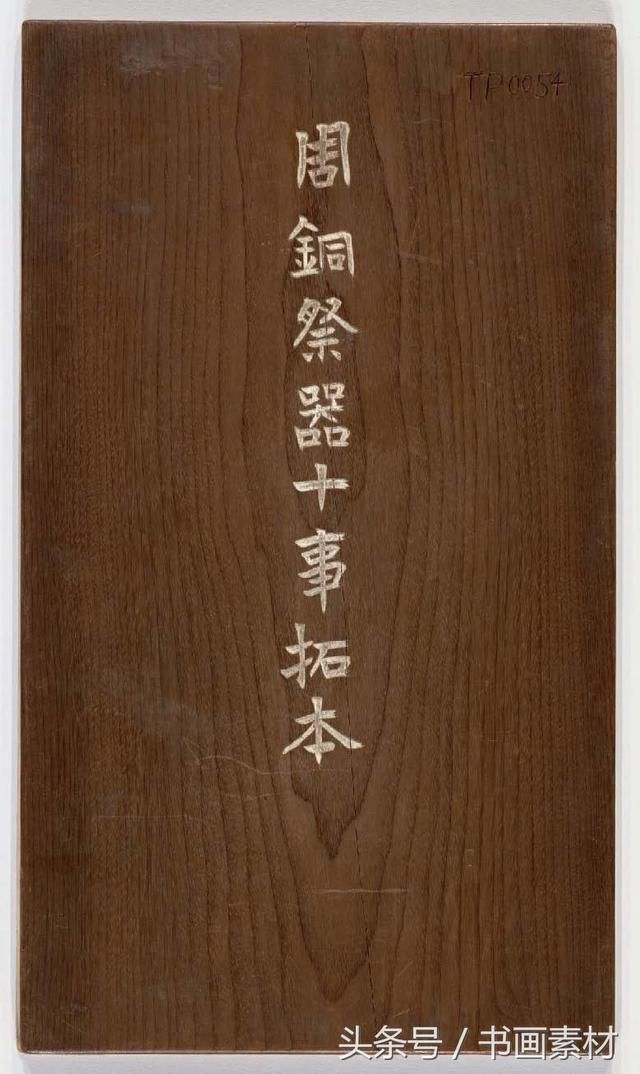 TP0054
周銅祭器十事拓本
头条号 / 书画素材